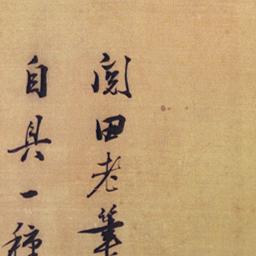 閲田老筆
自具一種